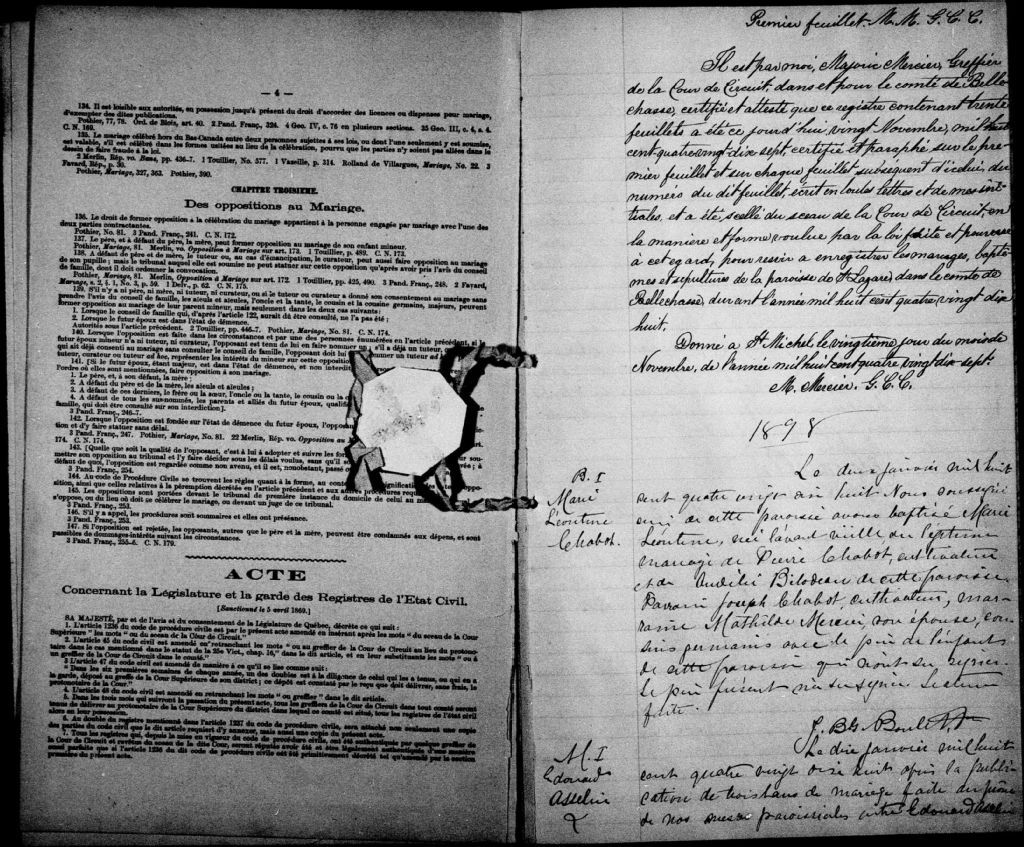 — 4 —
134. Il est loisible aux autorités, en possession jusqu'à présent du droit d'accorder des licences ou dispenses pour mariage,
d'exempter des dites publications.
Pothier, 77, 78. Ord. de Blois, art. 40. 2 Pand. Franç., 324. 4 Geo. IV, c. 76 en plusieurs sections. 25 Geo. III, c. 4, s. 4.
C. N. 169.
135. Le mariage célébré hors du Bas-Canada entre deux personnes sujettes à ses lois, ou dont l'une seulement y est soumise,
est valable, s'il est célébré dans les formes usitées au lieu de la célébration, pourvu que les parties n'y soient pas allées dans le
dessein de faire fraude à la loi.
2 Merlin, Rép. vo. Bans, pp. 436-7. 1 Touillier, No. 577. 1 Vazeille, p. 314. Rolland de Villargues, Mariage, No. 22. 3
Favard, Rép., p. 36.
Pothier, Mariage, 327, 363. Pothier, 390.
CHAPITRE TROISIEME.
Des oppositions au Mariage.
136. Le droit de former opposition à la célébration du mariage appartient à la personne engagée par mariage avec l'une des
deux parties contractantes.
Pothier, No. 81. 3 Pand. Franç., 241. C. N. 172.
137. Le père, et à défaut du père, la mère, peut former opposition au mariage de son enfant mineur.
Pothier, Mariage, 81. Merlin, vo. Opposition à Mariage sur art. 173. 1 Touillier, p. 489. C. N. 173.
138. A défaut de père et de mère, le tuteur ou, au cas d'émancipation, le curateur, peut aussi faire opposition au mariage
de son pupille; mais le tribunal auquel elle est soumise ne peut statuer sur cette opposition qu'après avoir pris l'avis du conseil
de famille, dont il doit ordonner la convocation.
Pothier, Mariage, 81. Merlin, Opposition à Mariage sur art. 172. 1 Touillier, pp. 425, 490. 3 Pand. Franç., 248. 2 Favard,
Mariage, s. 2, § 1, No. 3, p. 59. 1 Delv., p. 62. C. N. 175.
139. S'il n'y a ni père, ni mère, ni tuteur, ni curateur, ou si le tuteur ou curateur a donné son consentement au mariage sans
prendre l'avis du conseil de famille, les aïeuls et aïeules, l'oncle et la tante, le cousin et la cousine germains, majeurs, peuvent
former opposition au mariage de leur parent mineur, mais seulement dans les deux cas suivants:
1. Lorsque le conseil de famille qui, d'après l'article 122, aurait dû être consulté, ne l'a pas été;
2. Lorsque le futur époux est dans l'état de démence.
Autorités sous l'article précédent. 2 Touillier, pp. 446-7. Pothier, Mariage, No. 81. C. N. 174.
140. Lorsque l'opposition est faite dans les circonstances et par une des personnes énumérées en l'article précédent, si le
futur époux mineur n'a ni tuteur, ni curateur, l'opposant est tenu de lui en faire nommer un; s'il a déjà un tuteur
qui ait déjà consenti au mariage sans consulter le conseil de famille, l'opposant doit lui nommer un tuteur ad
tuteur, curateur ou tuteur ad hoc, représenter les intérêts du mineur sur cette opposition.
141. [Si le futur époux, étant majeur, est dans l'état de démence, et non interdit
l'ordre où elles sont mentionnées, faire opposition à son mariage.
1. Le père, et, à son défaut, la mère;
2. A défaut du père et de mère, les aïeuls et aïeules;
3. A défaut de ces derniers, le frère ou la sœur, l'oncle ou la tante, le cousin ou la
4. A défaut de tous les sus-nommés, les parents et alliés du futur époux, qualif
famille, qui doit être consulté sur son interdiction].
3 Pand. Franç., 246-7.
142. Lorsque l'opposition est fondée sur l'état de démence du futur époux, l'opposant
tion et d'y faire statuer sans délai.
3 Pand. Franç., 247. Pothier, Mariage, No. 81. 22 Merlin, Rép. vo. Opposition au
174. C. N. 174.
143. [Quelle que soit la qualité de l'opposant, c'est à lui à adopter et suivre les for
mettre son opposition au tribunal et l'y faire décider sous les délais voulus, sans qu'il s
défaut de quoi, l'opposition est regardée comme non avenue, et il est, nonobstant, passé
3 Pand. Franç., 254.
144. Au Code de Procédure Civile se trouvent les règles quant à la forme, au
sition, ainsi que celles relatives à la péremption décrétée en l'article précédent et aux autres procédures
145. Les oppositions sont portées devant le tribunal de première instance du domicile de celui au mariage
s'oppose, ou du lieu où doit se célébrer le mariage, ou devant un juge de ce tribunal.
3 Pand. Franç., 253.
146. S'il y a appel, les procédures sont sommaires et elles ont préséance.
3 Pand. Franç., 253.
147. Si l'opposition est rejetée, les opposants, autres que le père et la mère, peuvent être condamnés aux dépens, et sont
passibles de dommages-intérêts suivant les circonstances.
3 Pand. Franç., 255-6. C. N. 179.
ACTE
Concernant la Législature et la garde des Registres de l'Etat Civil.
[Sanctionné le 5 avril 1869.]
SA MAJESTÉ, par et de l'avis et du consentement de la Législature de Québec, décrète ce qui suit:
1. L'article 1236 du code de procédure civile est par le présent acte amendé en insérant après les mots "du sceau de la Cour
Supérieure" les mots "ou du sceau de la Cour de Circuit."
2. L'article 45 du code civil est amendé en retranchant les mots "ou au greffier de la Cour de Circuit au lieu du protono-
taire dans le cas mentionné dans le statut de la 25e Vict., chap. 16," dans le dit article, et en leur substituant les mots "ou à
un greffier de la Cour de Circuit dans le comté."
3. L'article 47 du code civil est amendé de manière à ce qu'il se lise comme suit:
"Dans les six premières semaines de chaque année, un des doubles est à la diligence de celui qui les a tenus, ou qui en a
la garde, déposé au greffe de la Cour Supérieure de son district; ce dépôt est constaté par le reçu que doit délivrer, sans frais, le
protonotaire de la Cour."
4. L'article 48 du code civil est amendé en retranchant les mots "ou greffier" dans le dit article.
5. Dans les trois mois qui suivront la passation du présent acte, tous les greffiers de la Cour de Circuit dans tout comté seront
tenus de délivrer au protonotaire de la Cour Supérieure du district dans lequel ce comté est situé, tous les registres de l'état civil
alors en leur possession.
6. Au double du registre mentionné dans l'article 1237 du code de procédure civile, sera annexé non seulement une copie
des parties du code civil que le dit article requiert d'y annexer, mais aussi une copie du présent acte.
7. Tous les registres qui, depuis la mise en vigueur du code de procédure civile, ont été authentiqués par quelque greffier de
la Cour de Circuit et revêtus du sceau de la dite Cour, seront réputés avoir été et être légalement authentiqués
aussi parfaite que si l'article 1236 du dit code de procédure civile eût été primitivement décrété tel qu'amendé par la section
première du présent acte.
Premier feuillet. M. M. G. C. C.
Il est par moi, Majoric Mercier, Greffier
de la Cour de Circuit, dans et pour le comté de Belle
chasse, certifié et attesté que ce registre contenant trente
feuillets a été ce jour d'hui, vingt Novembre, mil huit
cent-quatre-vingt-dix sept, certifié et paraphé sur le pre-
mier feuillet et sur chaque feuillet subséquent d'icelui, du
numéro du dit feuillet, écrit en toutes lettres et de mes ini-
tiales, et a été, scellé du sceau de la Cour de Circuit, en
la manière et forme voulue par la loi faite et pourvue
à cet égard, pour servir a enregistrer les mariages, baptê-
mes et sépultures de la paroisse de St Lazare, dans le comté de
Bellechasse, durant l'année mil huit cent quatre vingt dix
huit.
Donné à St Michel le vingtième jour du mois de
Novembre, de l'année mil huit cent quatre vingt dix sept.
M. Mercier. G. C. C.
1898
B. 1
Marie
Léontine
Chabot.
Le deux janvier mil huit
cent quatre vingt dix huit Nous soussigné
curé de cette paroisse avons baptisé Marie
Léontine, née l'avant veille du légitime
mariage de Pierre Chabot, cultivateur
et de Audélie Bilodeau de cette paroisse.
Parrain Joseph Chabot, cultivateur, mar-
raine Mathilde Mercier, son épouse, cou-
sins germains avec le père de l'enfant
de cette paroisse qui n'ont su signer.
Le père présent n'a su signer Lecture
faite.
J. Bte Boulet, Ptre
M. 1
Edouard
Asselin
&
Le dix janvier mil huit
cent quatre vingt dix huit après la publi-
cation de trois bans de mariage faite au prône
de nos messes paroissiales entre Edouard Asselin